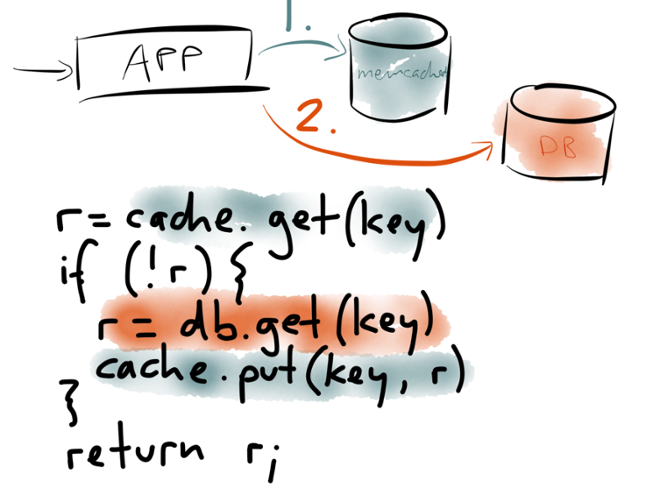 1.
APP
memcached
2.
DB
r = cache.get(key)
if (!r) {
r = db.get(key)
cache.put(key, r)
}
return r;